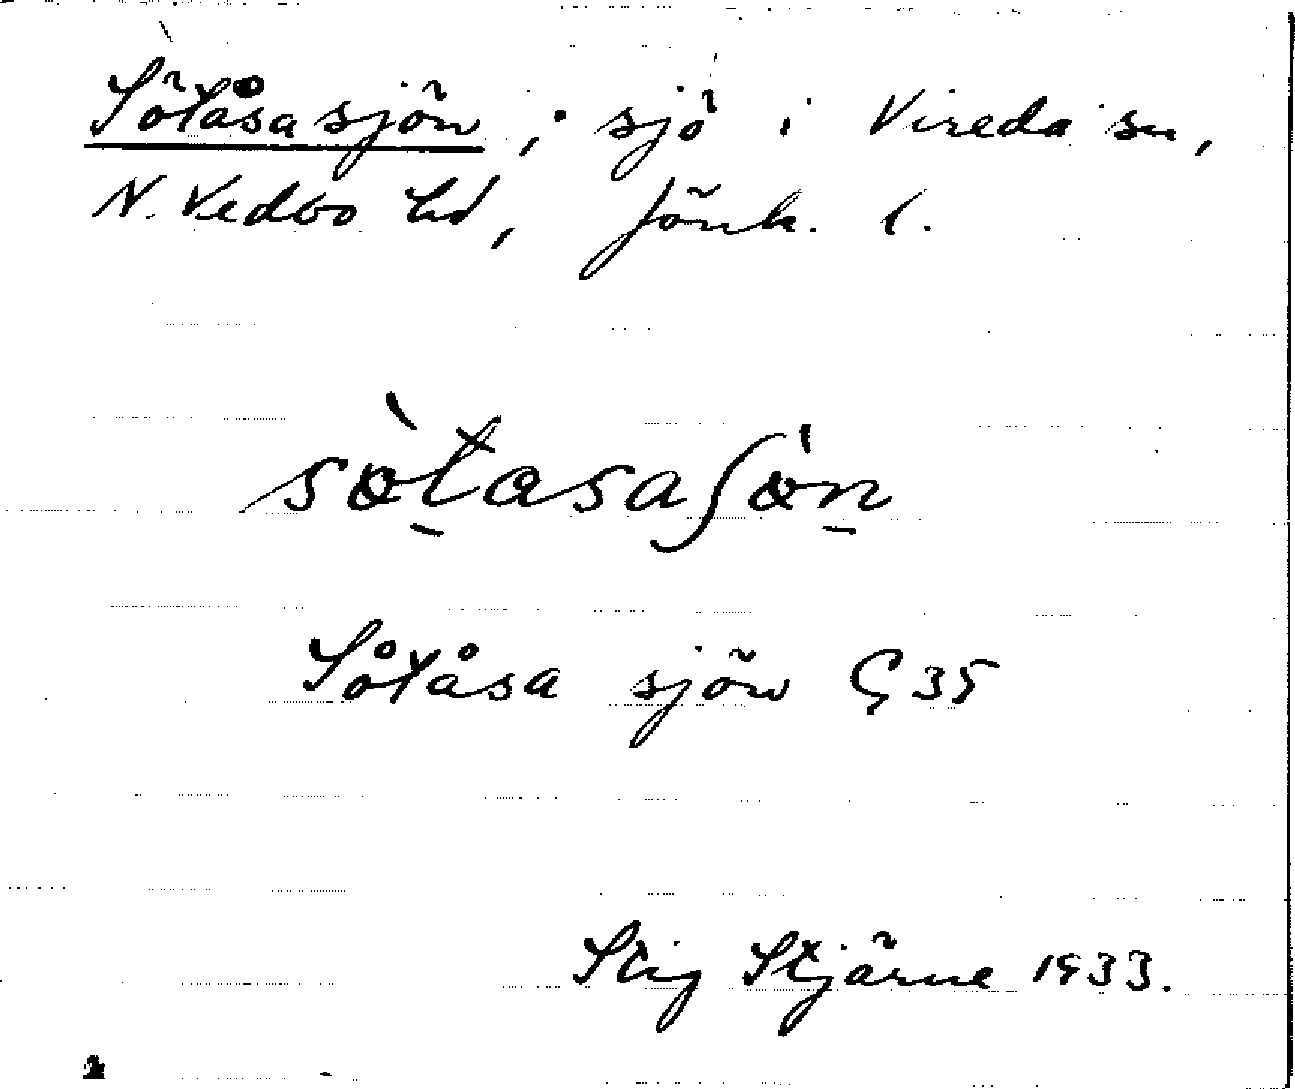 Sötåsasjön, sjö i Vireda sn,
N. Vedbo hd, Jönk. l.
sòtasaʃön
Såtåsa sjön G 35
Stig Stjärne 1933.